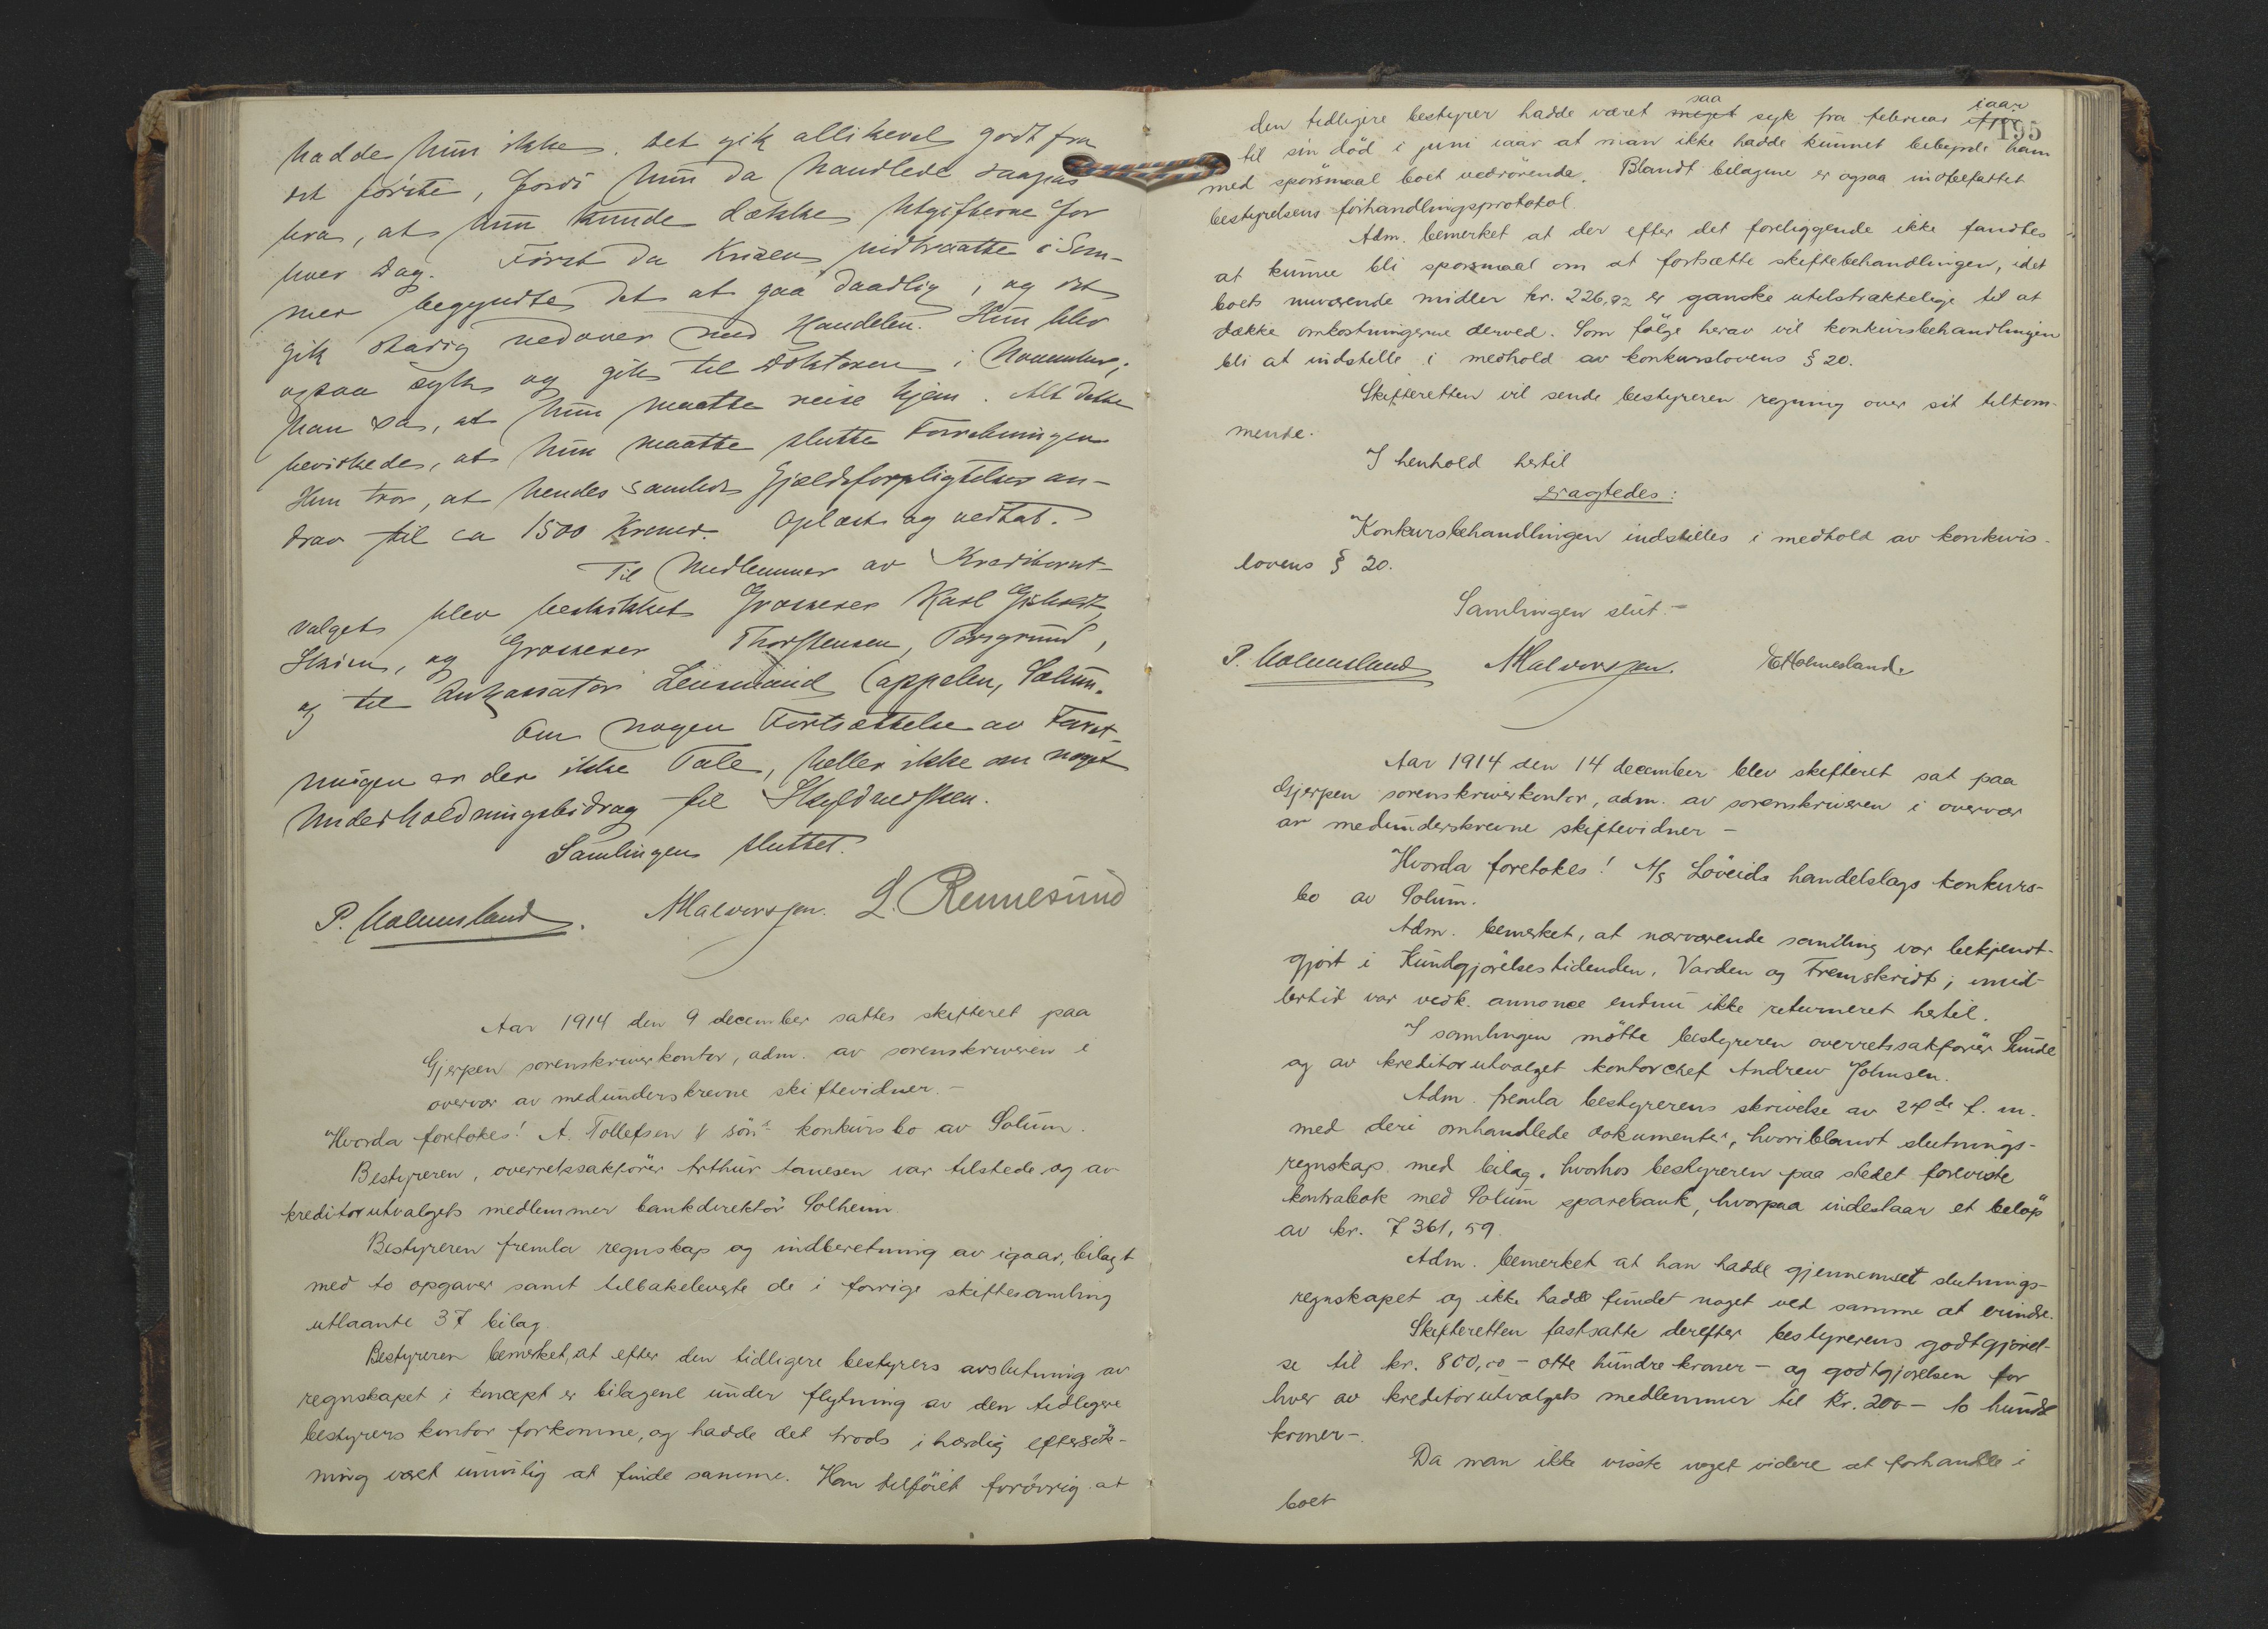 hadde hun ikke. Det gik allikevel godt fra
det første, fordi hun da handlede saapas
bra, at hun kunde dække Utgifterne for
hver Dag. Først da Krisen indtraatte i Som-
mer begyndte det at gaa daarlig, og det
gik stadig nedover med Handelen. Hun blev
ogsaa syk og gik til Doktoren i November;
han sa, at hun maatte reise hjem. Alt dette
bevirkedes, at hun maatte slutte Forretningen
Hun tror, at hendes samlede Gjældsforpligtelser an-
drar til ca 1500 Kroner. Oplæst og vedtat.
Til Medlemmer av Kreditorut-
valget blev beskikket Grosserer Karl
Skien, og Grosserer Thorstensen, Porsgrund,
og til Inkassator Lensmand Cappelen, Solum.
Om nogen Fortsættelse av Forret-
ningen er der ikke Tale, heller ikke om noget
Underholdningsbidrag til Skyldnersken.
Samlingen sluttet.
P. Holmesland. AHalvorsen. L. Rennesund
Aar 1914 den 9 december sattes skifteret paa
Gjerpen sorenskriverkontor, adm. av sorenskriveren i
overvær av medunderskrevne skiftevidner. -
Hvorda foretokes! A. Tollefsen & söns konkursbo av Solum.
Bestyreren, overretssakförer Arthur Tanesen var tilstede og av
kreditorutvalgets medlemmer bankdirektör Solheim.
Bestyreren fremla regnskap og indberetning av igaar, bilagt
med to opgaver samt tilbakeleverte de i forrige skiftesamling
utlaante 37 bilag.
Bestyreren bemerket, at efter den tidligere bestyrers avslutning av
regnskapet i koncept er bilagene under flytning av den tidligere
bestyrers kontor forkomne, og hadde det trods ihærdig eftersök-
ning været umulig at finde samme. Han tilföiet forövrig at
195
den tidligere bestyrer hadde været meget saa syk fra februar iaar
til sin död i juni iaar at man ikke hadde kunnet bebyrde ham
med spörsmaal boet vedrörende. Blandt bilagene er ogsaa indbefattet
bestyrelsens forhandlingsprotokol
Adm. bemerket at der efter det foreliggende ikke fandtes
at kunne bli spörsmaal om at fortsætte skiftebehandlingen, idet
boets nuværende midler kr. 226,92 er ganske utilstrækkelige til at
dække omkostningerne derved. Som fölge herav vil konkursbehandlingen
bli at indstille i medhold av konkurslovens § 20.
Skifteretten vil sende bestyreren regning over sit tilkom-
mende.
I henhold hertil
eragtedes:
Konkursbehandlingen indstilles i medhold av konkurs-
lovens § 20.
Samlingen slut. -
P. Holmesland AHalvorsen. EHolmesland.
Aar 1914 den 14 december blev skifteret sat paa
Gjerpen sorenskriverkontor, adm. av sorenskriveren i overvær
av medunderskrevne skiftevidner -
Hvorda foretokes! A/s Löveids handelslags konkurs-
bo av Solum.
Adm. bemerket, at nærværende samling var bekjendt-
gjort i Kundgjörelsestidenden, Varden og Fremskridt; imid-
lertid var vedk. annonce endnu ikke returneret hertil.
I samlingen mötte bestyreren overretssakförer Lunde
og av kreditorutvalget kontorchef Andrew Johnsen.
Adm. fremla bestyrerens skrivelse av 24de f. m.
med deri omhandlede dokumenter, hvoriblandt slutnings-
regnskap med bilag, hvorhos bestyreren paa stedet foreviste
kontrabok med Solum sparebank, hvorpaa indestaar et belöp
av kr. 7361,59.
Adm. bemerket at han hadde gjennemset slutnings-
regnskapet og ikke hadde fundet noget ved samme at erindre.
Skifteretten fastsatte derefter bestyrerens godtgjörel-
se til kr. 800,00 - otte hundre kroner - og godtgjörelsen for
hver av kreditorutvalgets medlemmer til Kr. 200 - to hundre
kroner -.
Da man ikke visste noget videre at forhandle i
boet